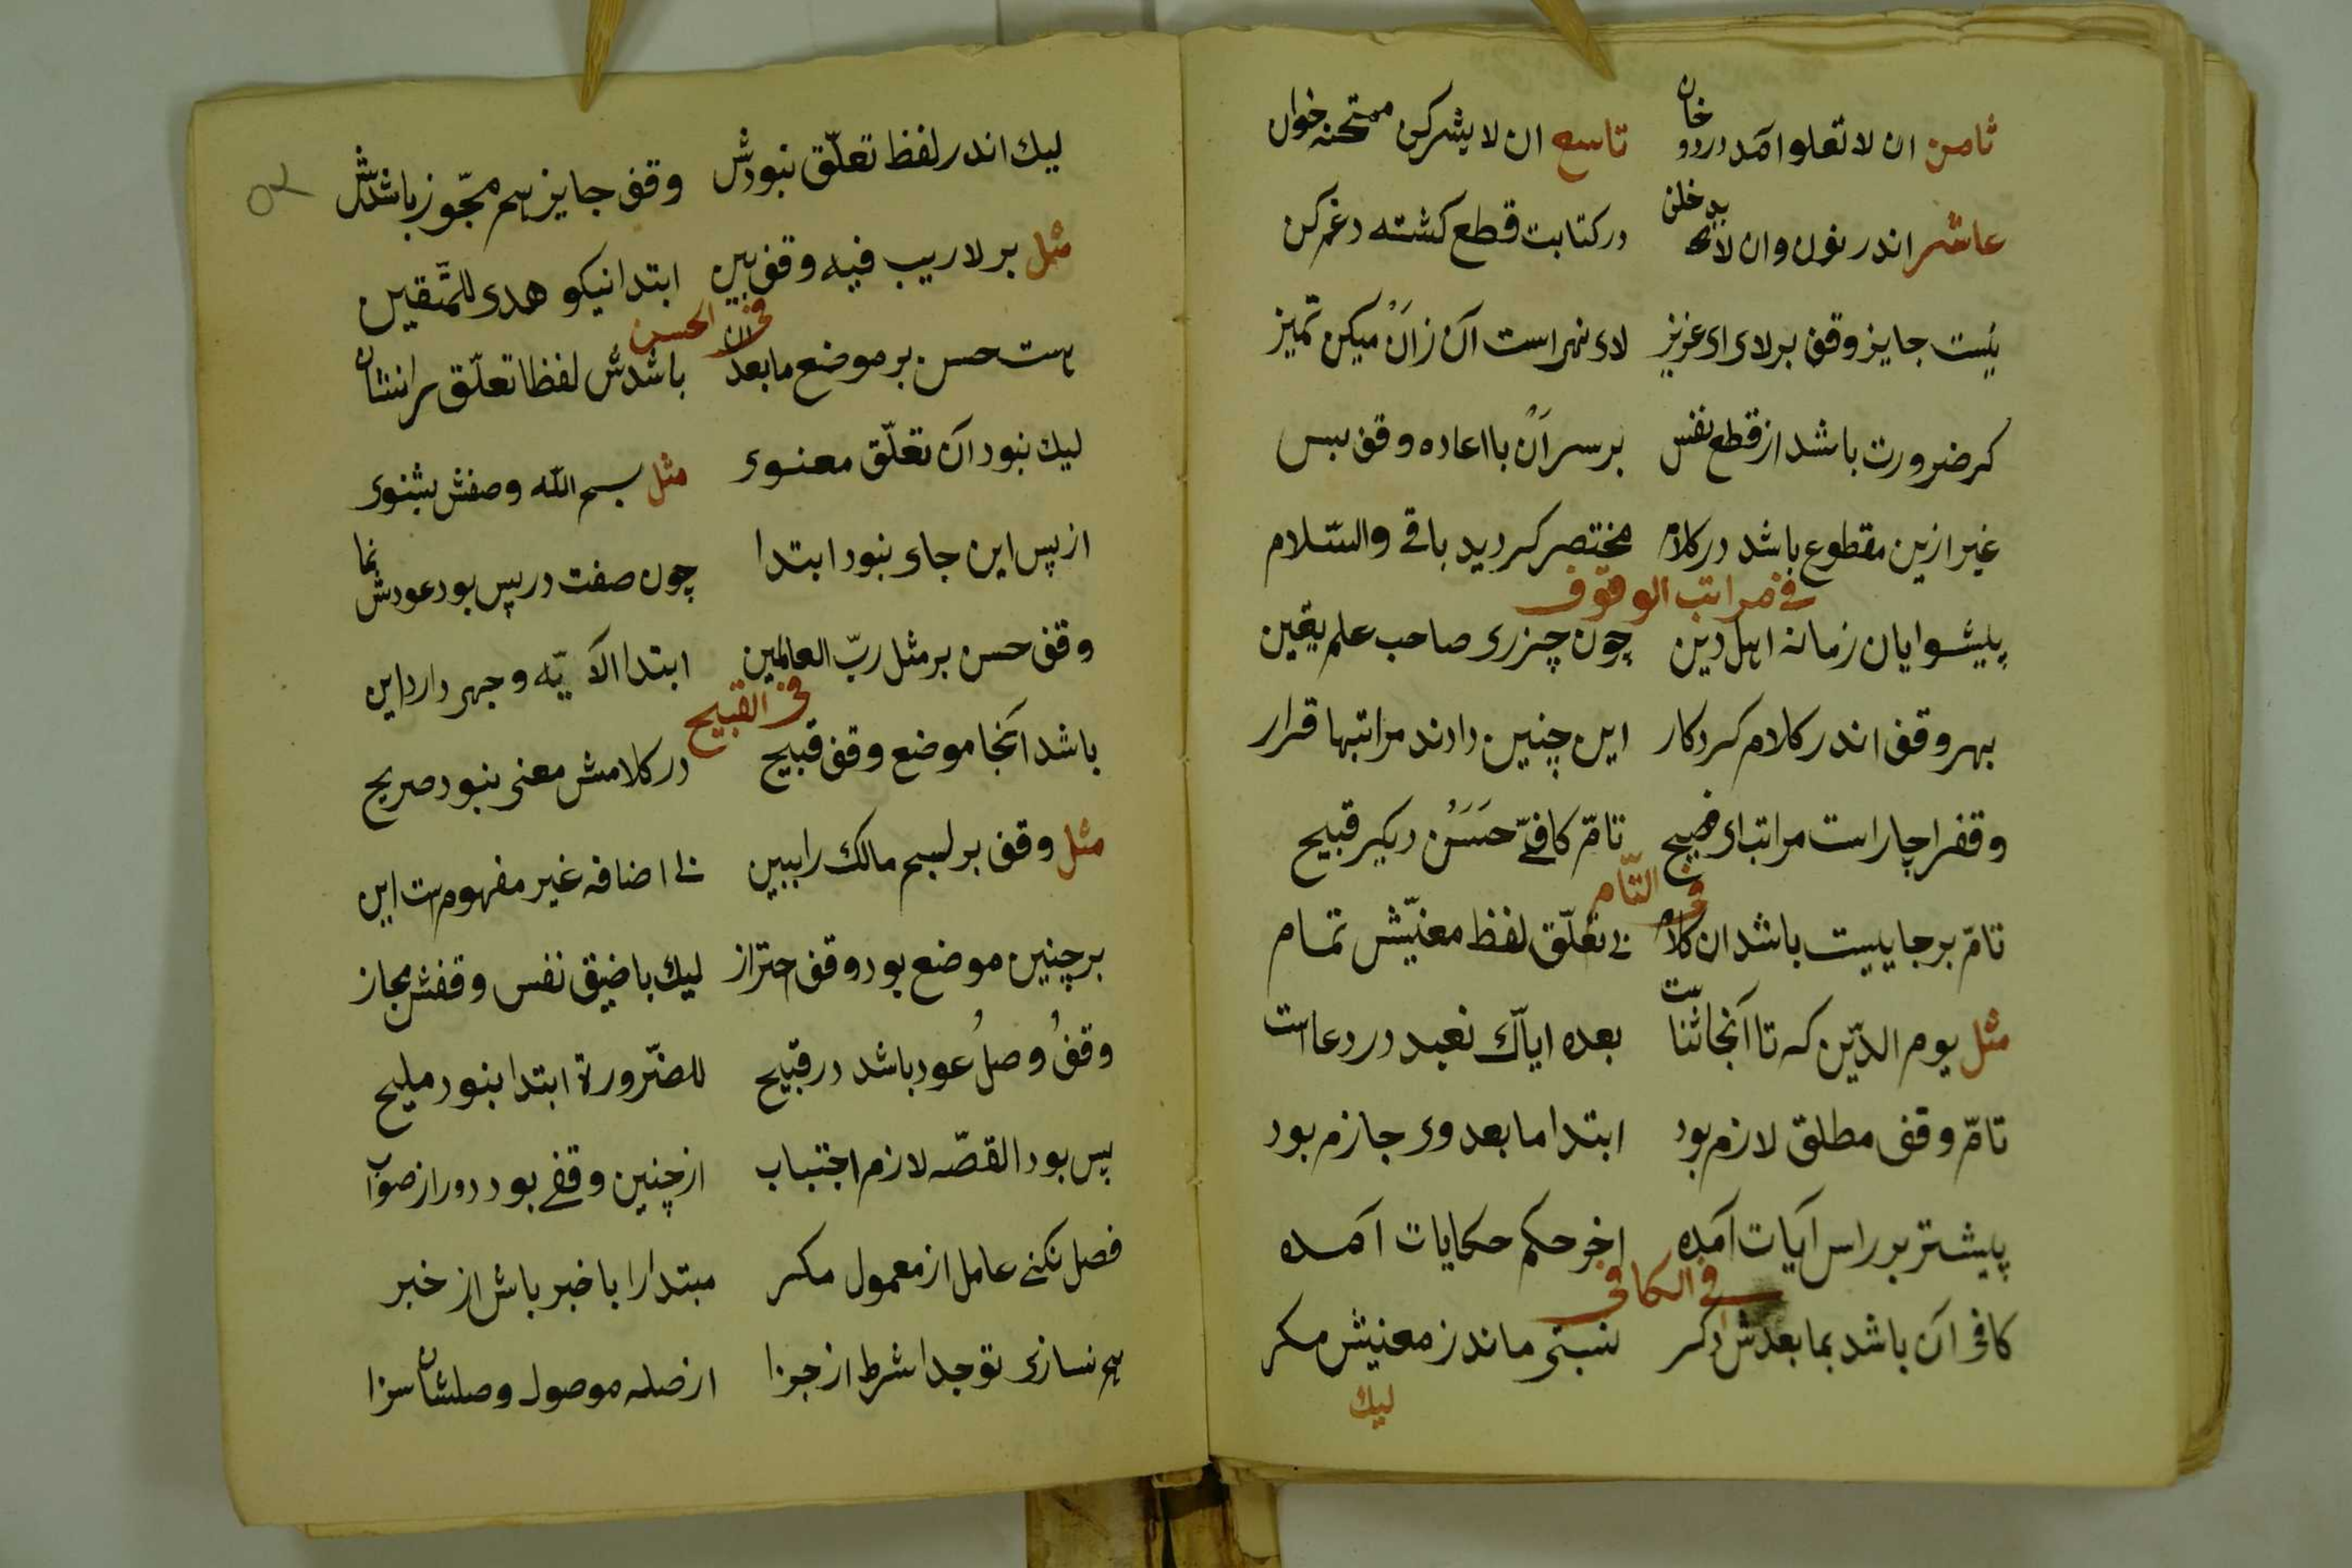 ثامن ان لا تعلوا آمد در دخان تاسع ان لا یشرکن ممتحنه خوان
عاشر اندر نون و ان لا ید خلن در کتابت قطع کشته دغم کن
نیست جایز وقف بر لای ای عزیز لای نهی است آن زأنْ میکن تمیز
کر ضرورت باشد از قطع نفس بر سر أنْ با اعاده وقف بس
غیر ازین مقطوع باشد در کلام مختصر کردید باقی والسّلام
فی مراتب الوقوف
پیشوایان زمانه اهل دین چون جزری صاحب علم یقین
بهر وقف اندر کلام کردکار این چنین دادند مراتبها قرار
وقفرا چار است مراتب ای فصیح تامّ کافیّ حَسَنُ دیکر قبیح
فی التّام
تامّ بر جاییست باشد ان کلام بی تعلّق لفظ معنیّش تمام
مثل یوم الدّین که تا آنجا ثناست بعده ایاّک نعبد در دعا است
تامّ وقف مطلق لازم بود ابتدا ما بعد وی جازم بود
پیشتر بر راس آیات آمده اخر حکم حکایات آمده
فی الکافی
کافی آن باشد بما بعدش دکر نسبتی ماند ز معنیش مکر
لیك
لیك اندر لفظ تعلّق نبودش وقف جایز هم مجّوز باشدش
مثل بر لا ریب فیه وقف بین ابتدا نیکو هدی للمتّقین
فی الحسن
هست حسن بر موضع ما بعد ان باشدش لفظا تعلّق را نشان
لیك نبود آن تعلّق معنوی مثل بسم الله وصفش بشنوی
از پس این جای نبود ابتدا چون صفت در پس بود عودش نما
وقف حسن بر مثل ربّ العالمین ابتدا الآ یّه وجهی دارد این
فی القبیح
باشد آنجا موضع وقف قبیح در کلامش معنی نبود صریح
مثل وقف بر لبسم مالك را ببین بی اضافه غیر مفهومست این
بر چنین موضع بود وقف احتراز لیك با ضیق نفس وقفش مجاز
وقفُ وصلُ عود باشد در قبیح للضّرورة ابتدا نبود ملیح
پس بود القصّه لازم اجتناب از چنین وقفی بود دور از صواب
فصل نکنی عامل از معمول مکر مبتدا را با خبر باش از خبر
هم نسازی تو جدا شرط از جزا از صله موصول وصلشان سزا